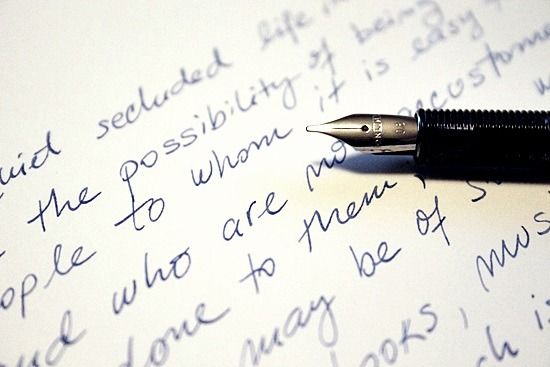 uiet secluded life in
the possibility of being
ople to whom it is easy
and who are no ccustome
done to them,
may be of s
ooks, mus
ch i